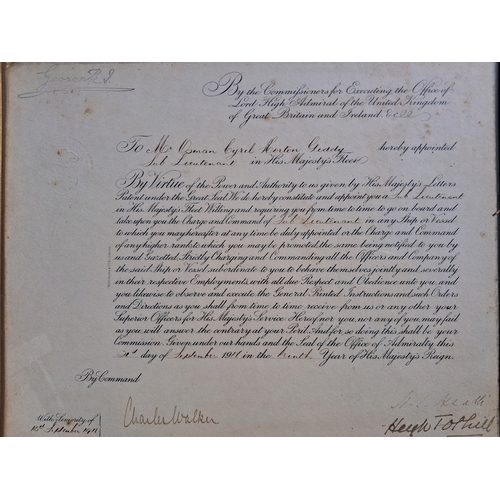 George R. I.
By the Commissioners for Executing the Office of
Lord High Admiral of the United Kingdom
of Great Britain and Ireland &c &c
To Mr Osman Cyril Horton Geady hereby appointed
Sub Lieutenant in His Majesty's Fleet
By Virtue of the Power and Authority to us given by His Majesty's Letters
Patent under the Great Seal We do hereby constitute and appoint you a Sub Lieutenant
in His Majesty's Fleet Willing and requiring you from time to time to go on board and
take upon you the Charge and Command of Sub Lieutenant in any Ship or Vessel
to which you may hereafter at any time be duly appointed or the Charge and Command
of any higher rank to which you may be promoted, the same being notified to you by
us and Gazetted. Strictly Charging and Commanding all the Officers and Company of
the said Ship or Vessel subordinate to you to behave themselves jointly and severally
in their respective Employments, with all due Respect and Obedience unto you, and
you likewise to observe and execute the General Printed Instructions and such Orders
and Directions as you shall from time to time receive from us or any other your
Superior Officers for His Majesty's Service Hereof nor you, nor any of you may fail
as you will answer the contrary at your Peril. And for so doing this shall be your
Commission. Given under our hands and the Seal of the Office of Admiralty this
day of September 1918 in the Year of His Majesty's Reign.
By Command
With Seniority of
15th September 1918
Charles Walker
Hugh Tothill